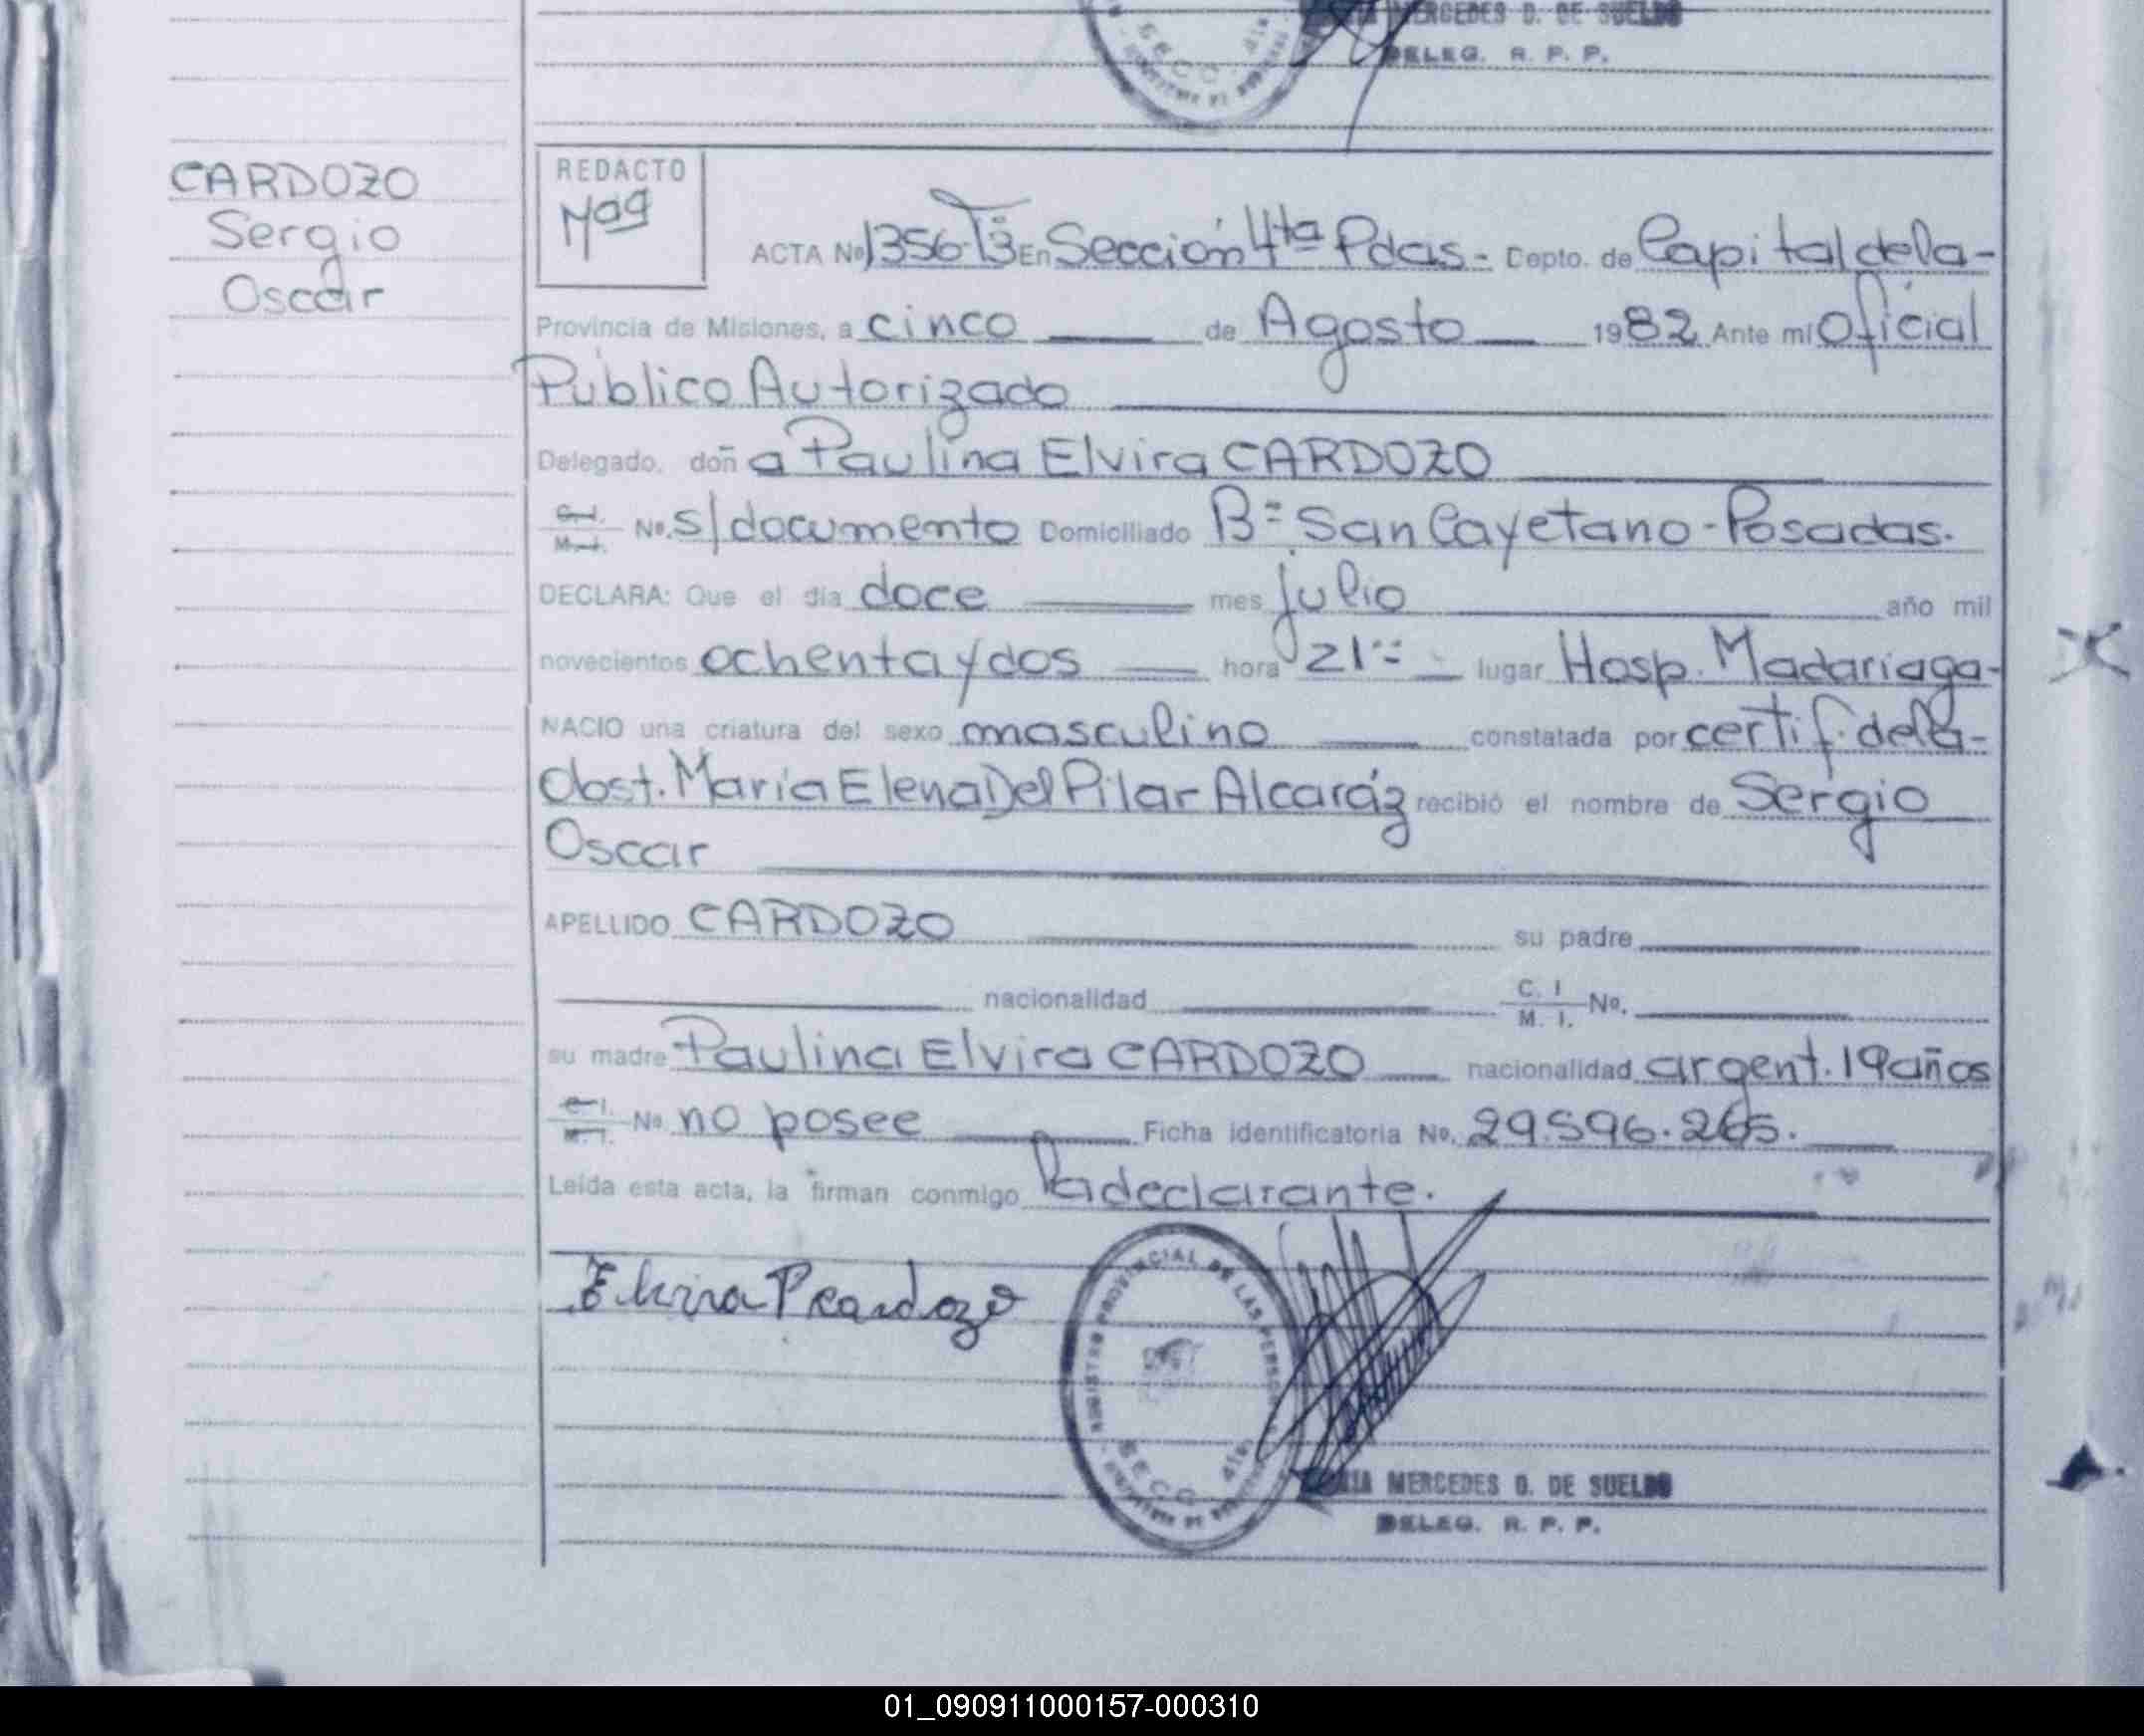 MERCEDES D. DE SUELDO
DELEG. R. P. P.
SECC. 4ta
CARDOZO
Sergio
Oscar
REDACTO
Mag
ACTA Nº 1356 Tº3 En Sección 4ta Pdas - Depto. de Capital de la-
Provincia de Misiones, a cinco de Agosto 1982 Ante mí Oficial
Público Autorizado
Delegado, doña Paulina Elvira CARDOZO
C. I. M. I. Nº. s/documento Domiciliado Bº San Cayetano - Posadas.
DECLARA: Que el día doce mes julio año mil
novecientos ochenta y dos hora 21 lugar Hosp. Madariaga-
NACIO una criatura del sexo masculino constatada por certif. de la-
Obst. María Elena Del Pilar Alcaráz recibió el nombre de Sergio
Oscar
APELLIDO CARDOZO su padre
nacionalidad C. I. M. I. Nº.
su madre Paulina Elvira CARDOZO nacionalidad argent. 19 años
C. I. M. I. Nº no posee Ficha identificatoria Nº. 29.596.265.
Leída esta acta, la firman conmigo la declarante.
Elvira P Cardozo
REGISTRO PROVINCIAL DE LAS PERSONAS
SECC. 4ta
MERCEDES D. DE SUELDO
DELEG. R. P. P.
01_090911000157-000310